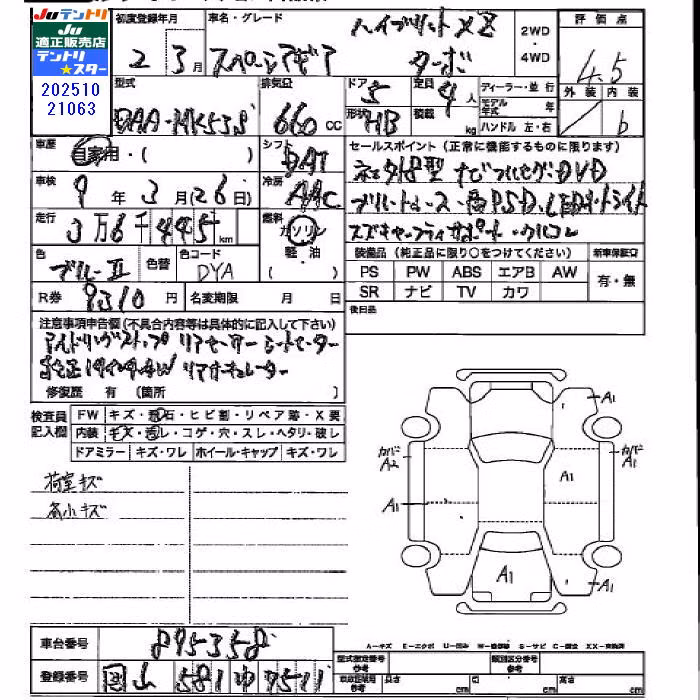 Juテントリ
Ju
適正販売店
テントリ
★スター
202510
21063
初度登録年月
2 3月
車名・グレード
スペーシアギア
ハイブリットXZ
ターボ
2WD
・
4WD
評価点
4.5
外装 内装
b
型式
DAA-MK53S
排気量
660 cc
ドア
5
形状
HB
定員
4人
積載
kg
ディーラー・並行
モデル年式 年
ハンドル 左・右
車歴
自家用・( )
シフト
DAT
車検
9年 3月(26日)
冷房
AAC
走行
3万6千445km
燃料
ガソリン
軽・油
( )
色
ブルーII
色替
色コード
DYA
R券 9310円
名変期限 月 日
セールスポイント (正常に機能するものに限ります)
ネオクロ8型 ナビフルセグ・DVD
ブルートゥース・両PSD、LEDオートライト
スズキセーフティサポート・クルコン
装備品 (純正品に限り○をつけてください)
新車保証書
PS PW ABS エアB AW
SR ナビ TV カワ
有・無
後日品
注意事項申告欄(不具合内容等は具体的に記入して下さい)
アイドリングストップ リアセーサー シートヒーター
純正14インチAW リアサーキュレーター
修復歴 有 (箇所 )
検査員
記入欄
FW キズ・飛石・ヒビ割・リペア跡・X要
内装 キズ・汚レ・コゲ・穴・スレ・ヘタリ・破レ
ドアミラー キズ・ワレ ホイール・キャップ キズ・ワレ
荷室キズ
各小キズ
A1
カバー
A2
カバー
A1
A1
A1
A1
A1
車台番号 895358
登録番号 岡山 581 ゆ 7511
A－キズ E－エクボ U－凹み W－補修跡 S－サビ C－腐食 XX－交換済
型式指定番号
類別区分番号
車庫証明用参考
長さ cm
巾 cm
高さ cm